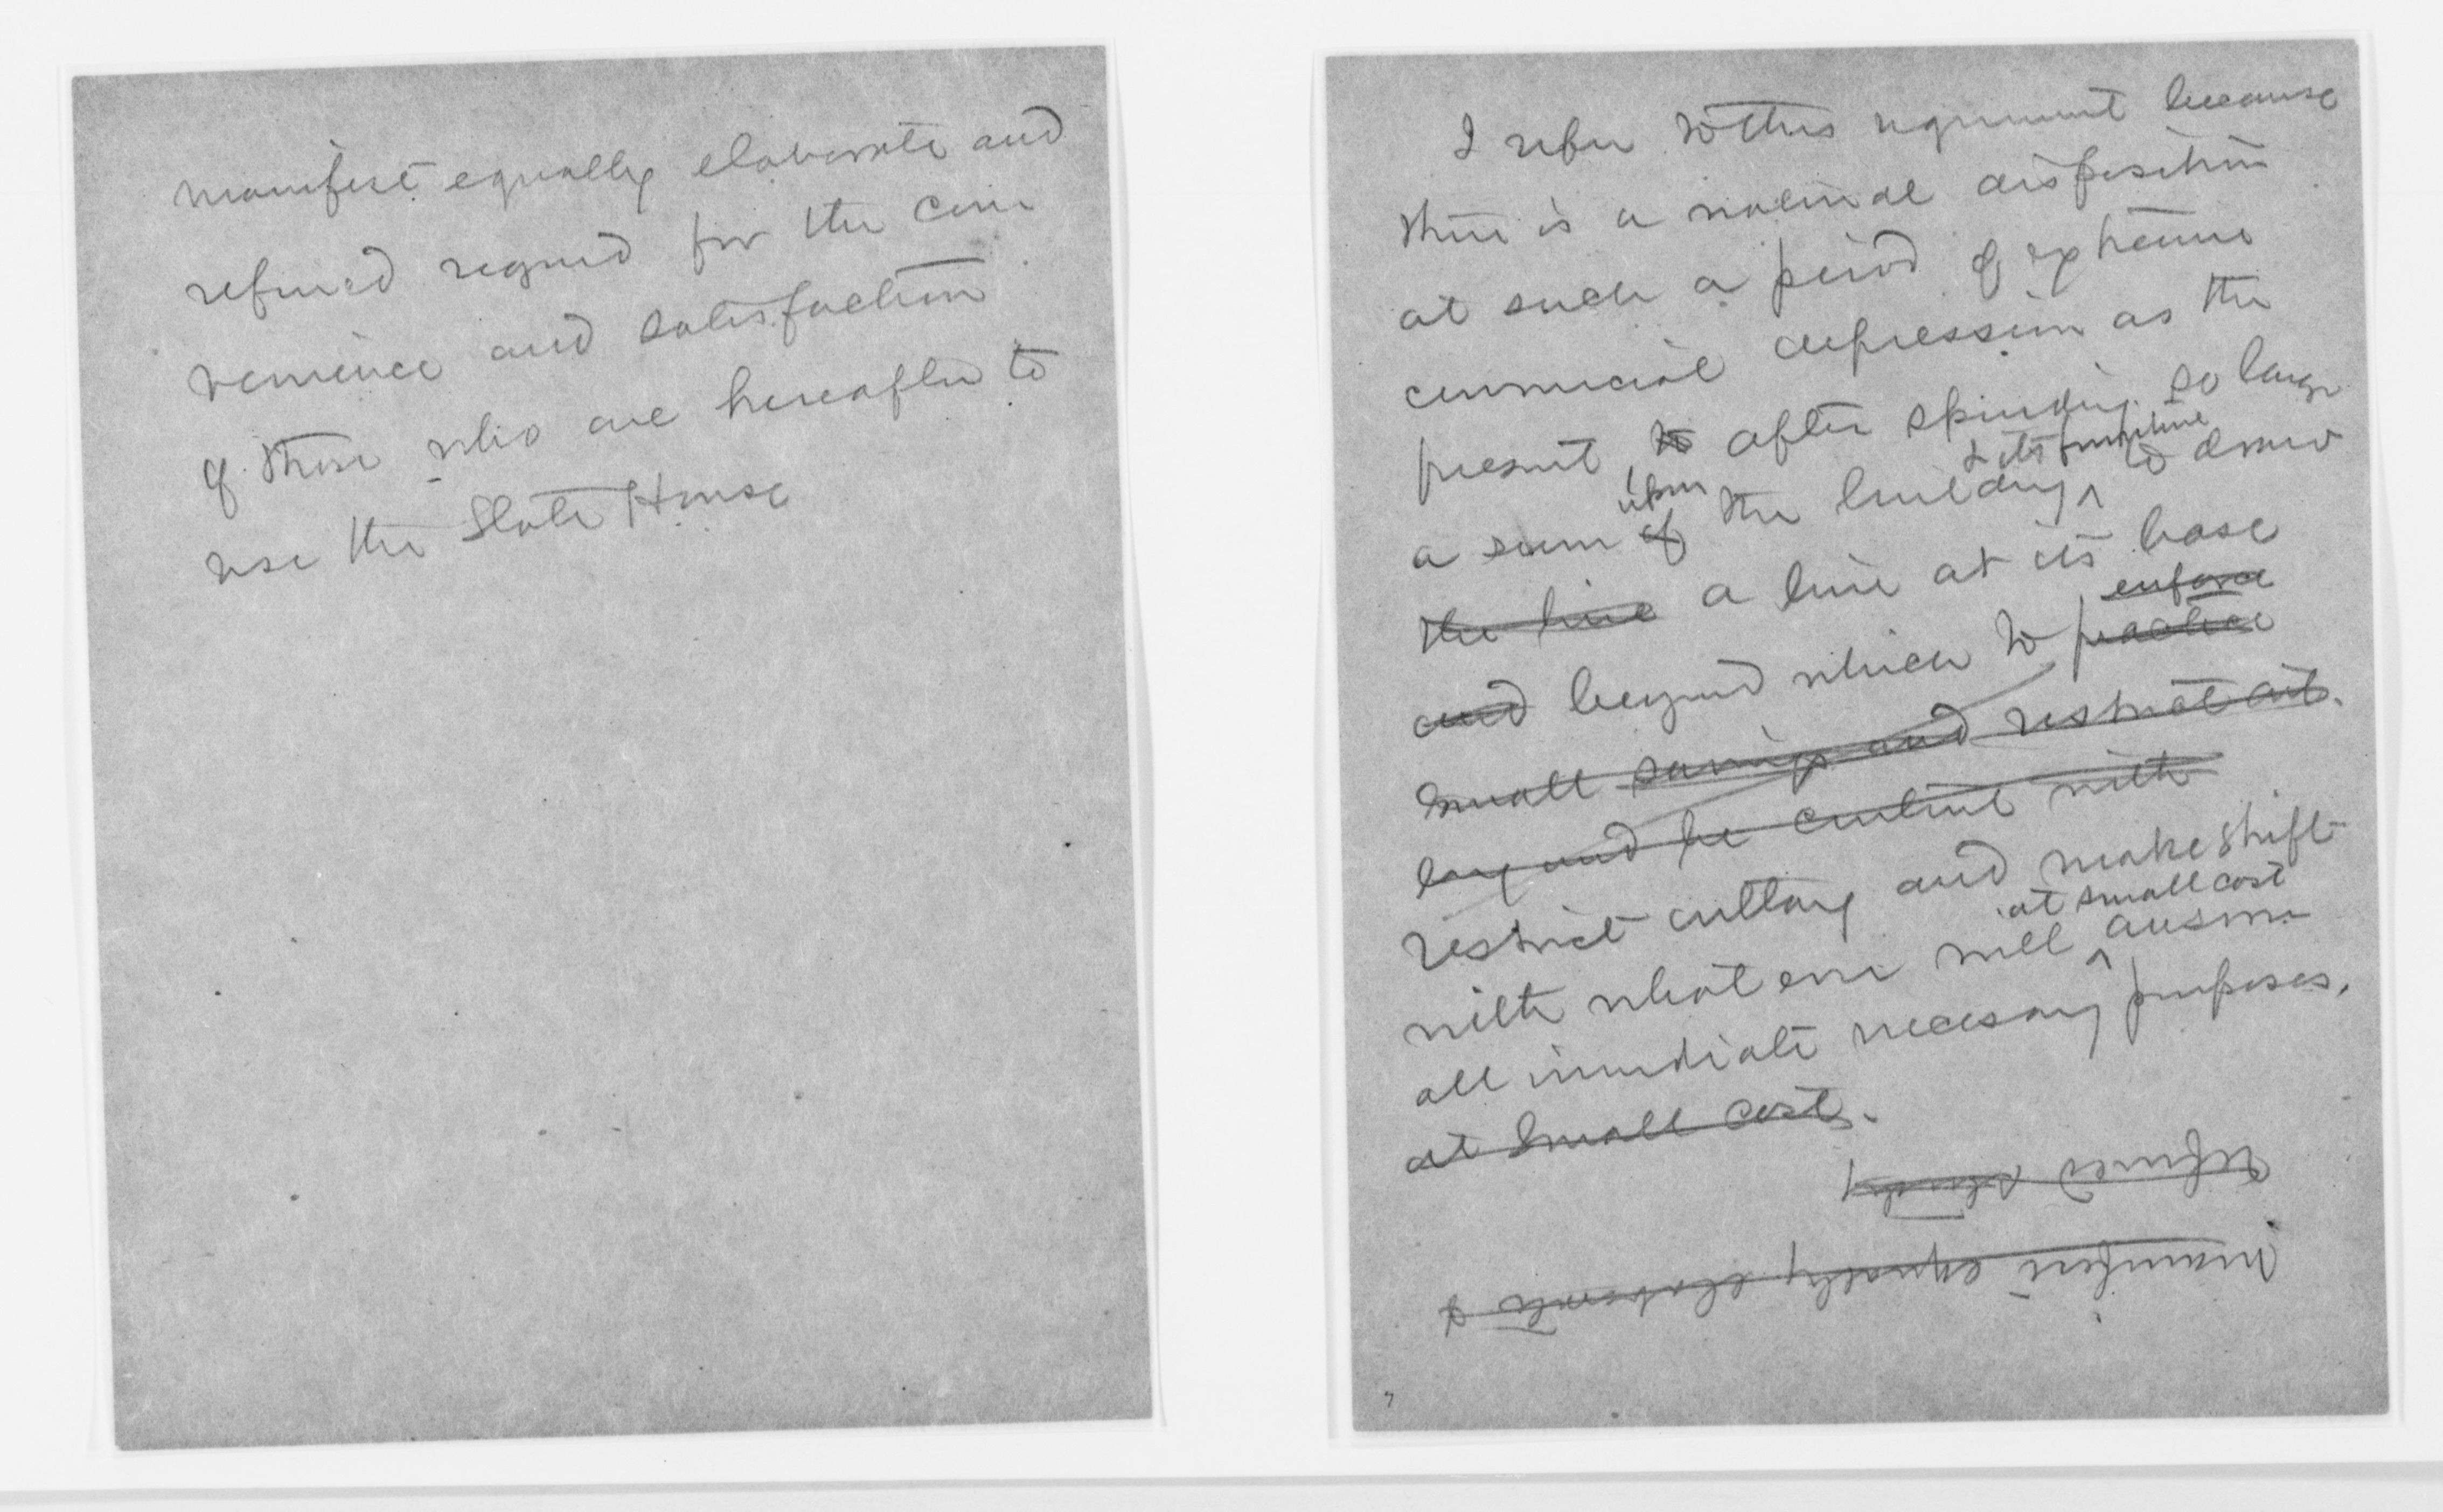 manifest equally elaborate and
refined regard for the con
venience and satisfaction
of those who are hereafter to
use the State House
I refer to this argument because
there is a natural disposition
at such a period of extreme
commercial depression as the
present, to after spending so large
upon & its furniture
a sum of the building ^ to draw
the line a line at its base
enforce
and beyond which to practice
small savings and restrict out-
lay and be content with
restrict outlay and make shift
at small cost
with what ever will ^ answer
all immediate necessary purposes.
at small cost.
refined
manifest equally elaborate &